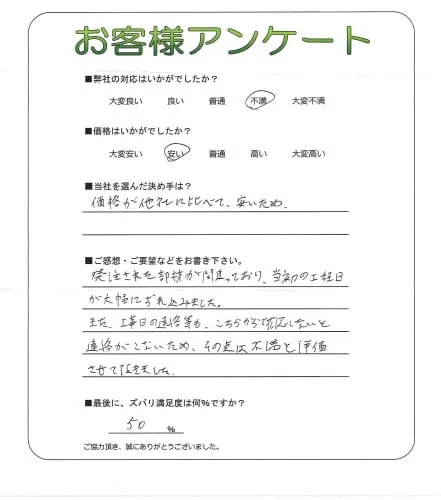 お客様アンケート
■弊社の対応はいかがでしたか？
大変良い 良い 普通 不満 大変不満
■価格はいかがでしたか？
大変安い 安い 普通 高い 大変高い
■当社を選んだ決め手は？
価格が他社に比べて、安いため．
■ご感想・ご要望などをお書き下さい。
発注された部材が間違っており、当初の工程日
が大幅にずれ込みました。
また、工事日の連絡等も、こちらから対応しないと
連絡がこないため、その点は不満と評価
させて頂きました．
■最後に、ズバリ満足度は何%ですか？
50 %
ご協力頂き、誠にありがとうございました。